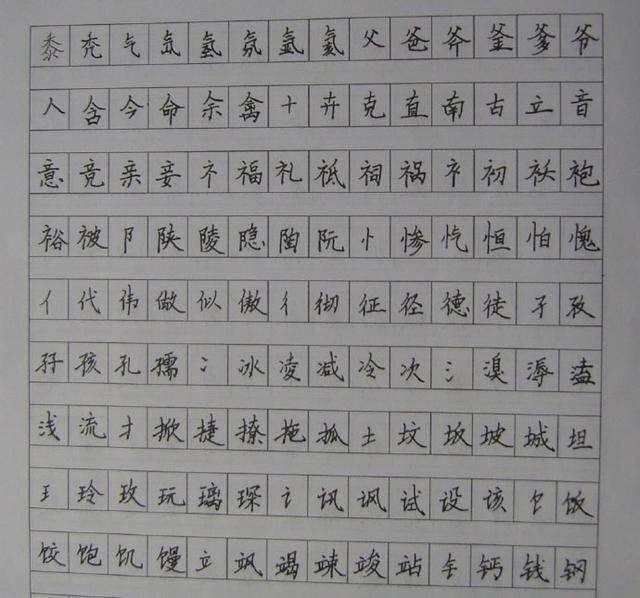 黍秃气氙氢氛氩氦父爸斧釜爹爷
人含今命余禽十卉克直南古立音
意竞亲妾礻福礼祗祠祸衤初袄袍
裕被阝陕陵隐陶阮忄惨忾恒怕愧
亻代伟做似傲彳彻征径德徒孑孜
孖孩孔孺冫冰凌减冷次氵溴溽溘
浅流扌掀捷撩拖抓土坟坂坡城坦
王玲玫玩璃琛讠讯讽试设该饣饭
饺饱饥馒立飒竭竦竣站钅钙钱钢